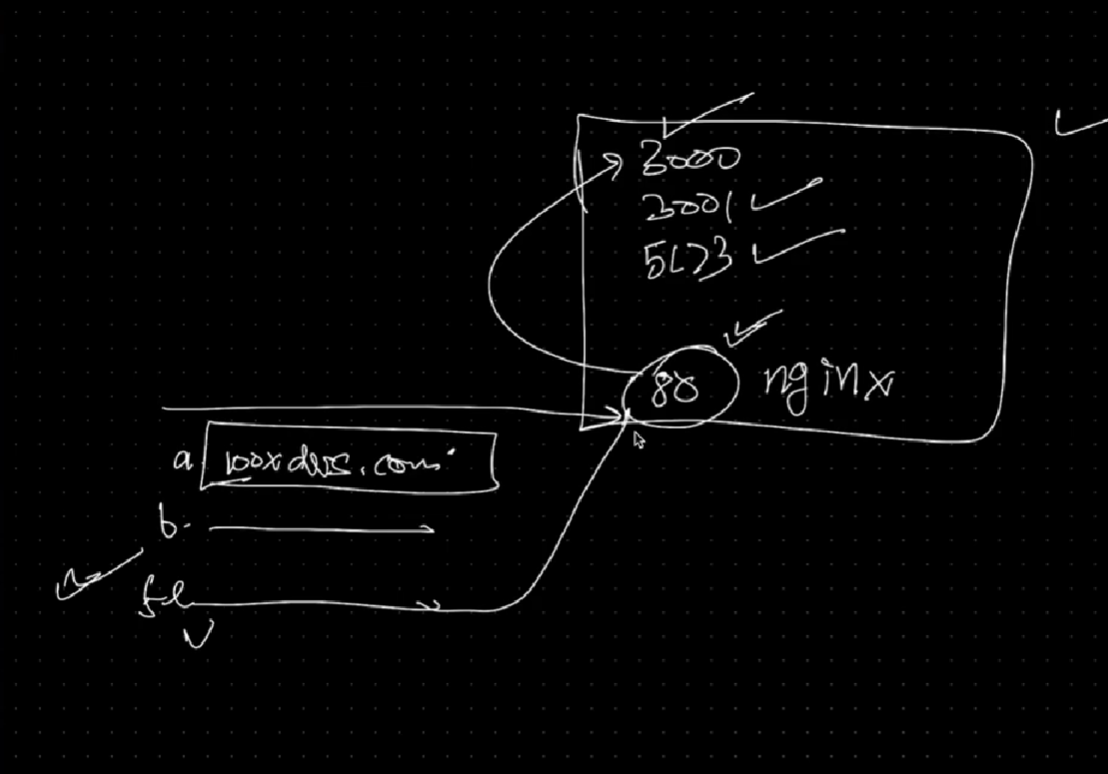 3000
3001
5173
80 nginx
a 100xdevs.com
b.
fe